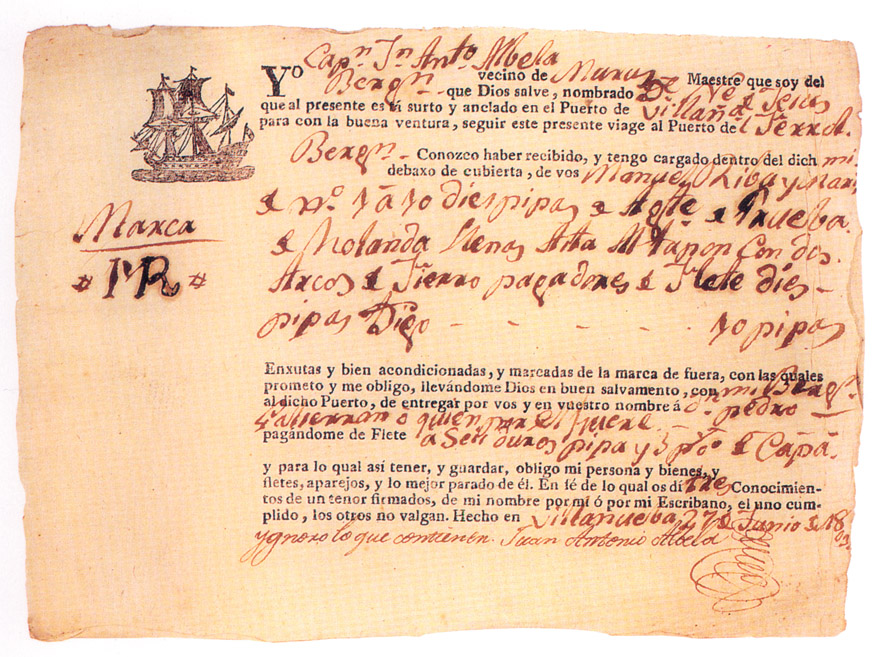 Capn. Jn. Anto. Abela
Yo vecino de Muros Maestre que soy del
Bergn. que Dios salve, nombrado
que al presente está surto y anclado en el Puerto de Villana.
para con la buena ventura, seguir este presente viage al Puerto del Ferrol.
Bergn. Conozco haber recibido, y tengo cargado dentro del dich mi
debaxo de cubierta, de vos Manuel Riba y
Marca
de no. 1 a 10 dies pipas de Agte. de Prueba
de Holanda llenas Atta. Al tapon Con dos
# MR #
Arcos de Fierro pagadores de Flete dies
pipas Digo - - - - 10 pipas
Enxutas y bien acondicionadas, y marcadas de la marca de fuera, con las quales
prometo y me obligo, llevándome Dios en buen salvamento, con mi Bergn.
al dicho Puerto, de entregar por vos y en vuestro nombre á dn. pedro
ó quien por el fuere
pagándome de Flete a Seis duros pipa y 5 p%o de Capa.
y para lo qual así tener, y guardar, obligo mi persona y bienes, y
fletes, aparejos, y lo mejor parado de él. En fé de lo qual os dí tres Conocimien-
tos de un tenor firmados, de mi nombre por mí ó por mi Escribano, el uno cum-
plido, los otros no valgan. Hecho en Villanueba 27 de Junio de 18
09
y gnoro lo que contienen Juan Antonio Abela